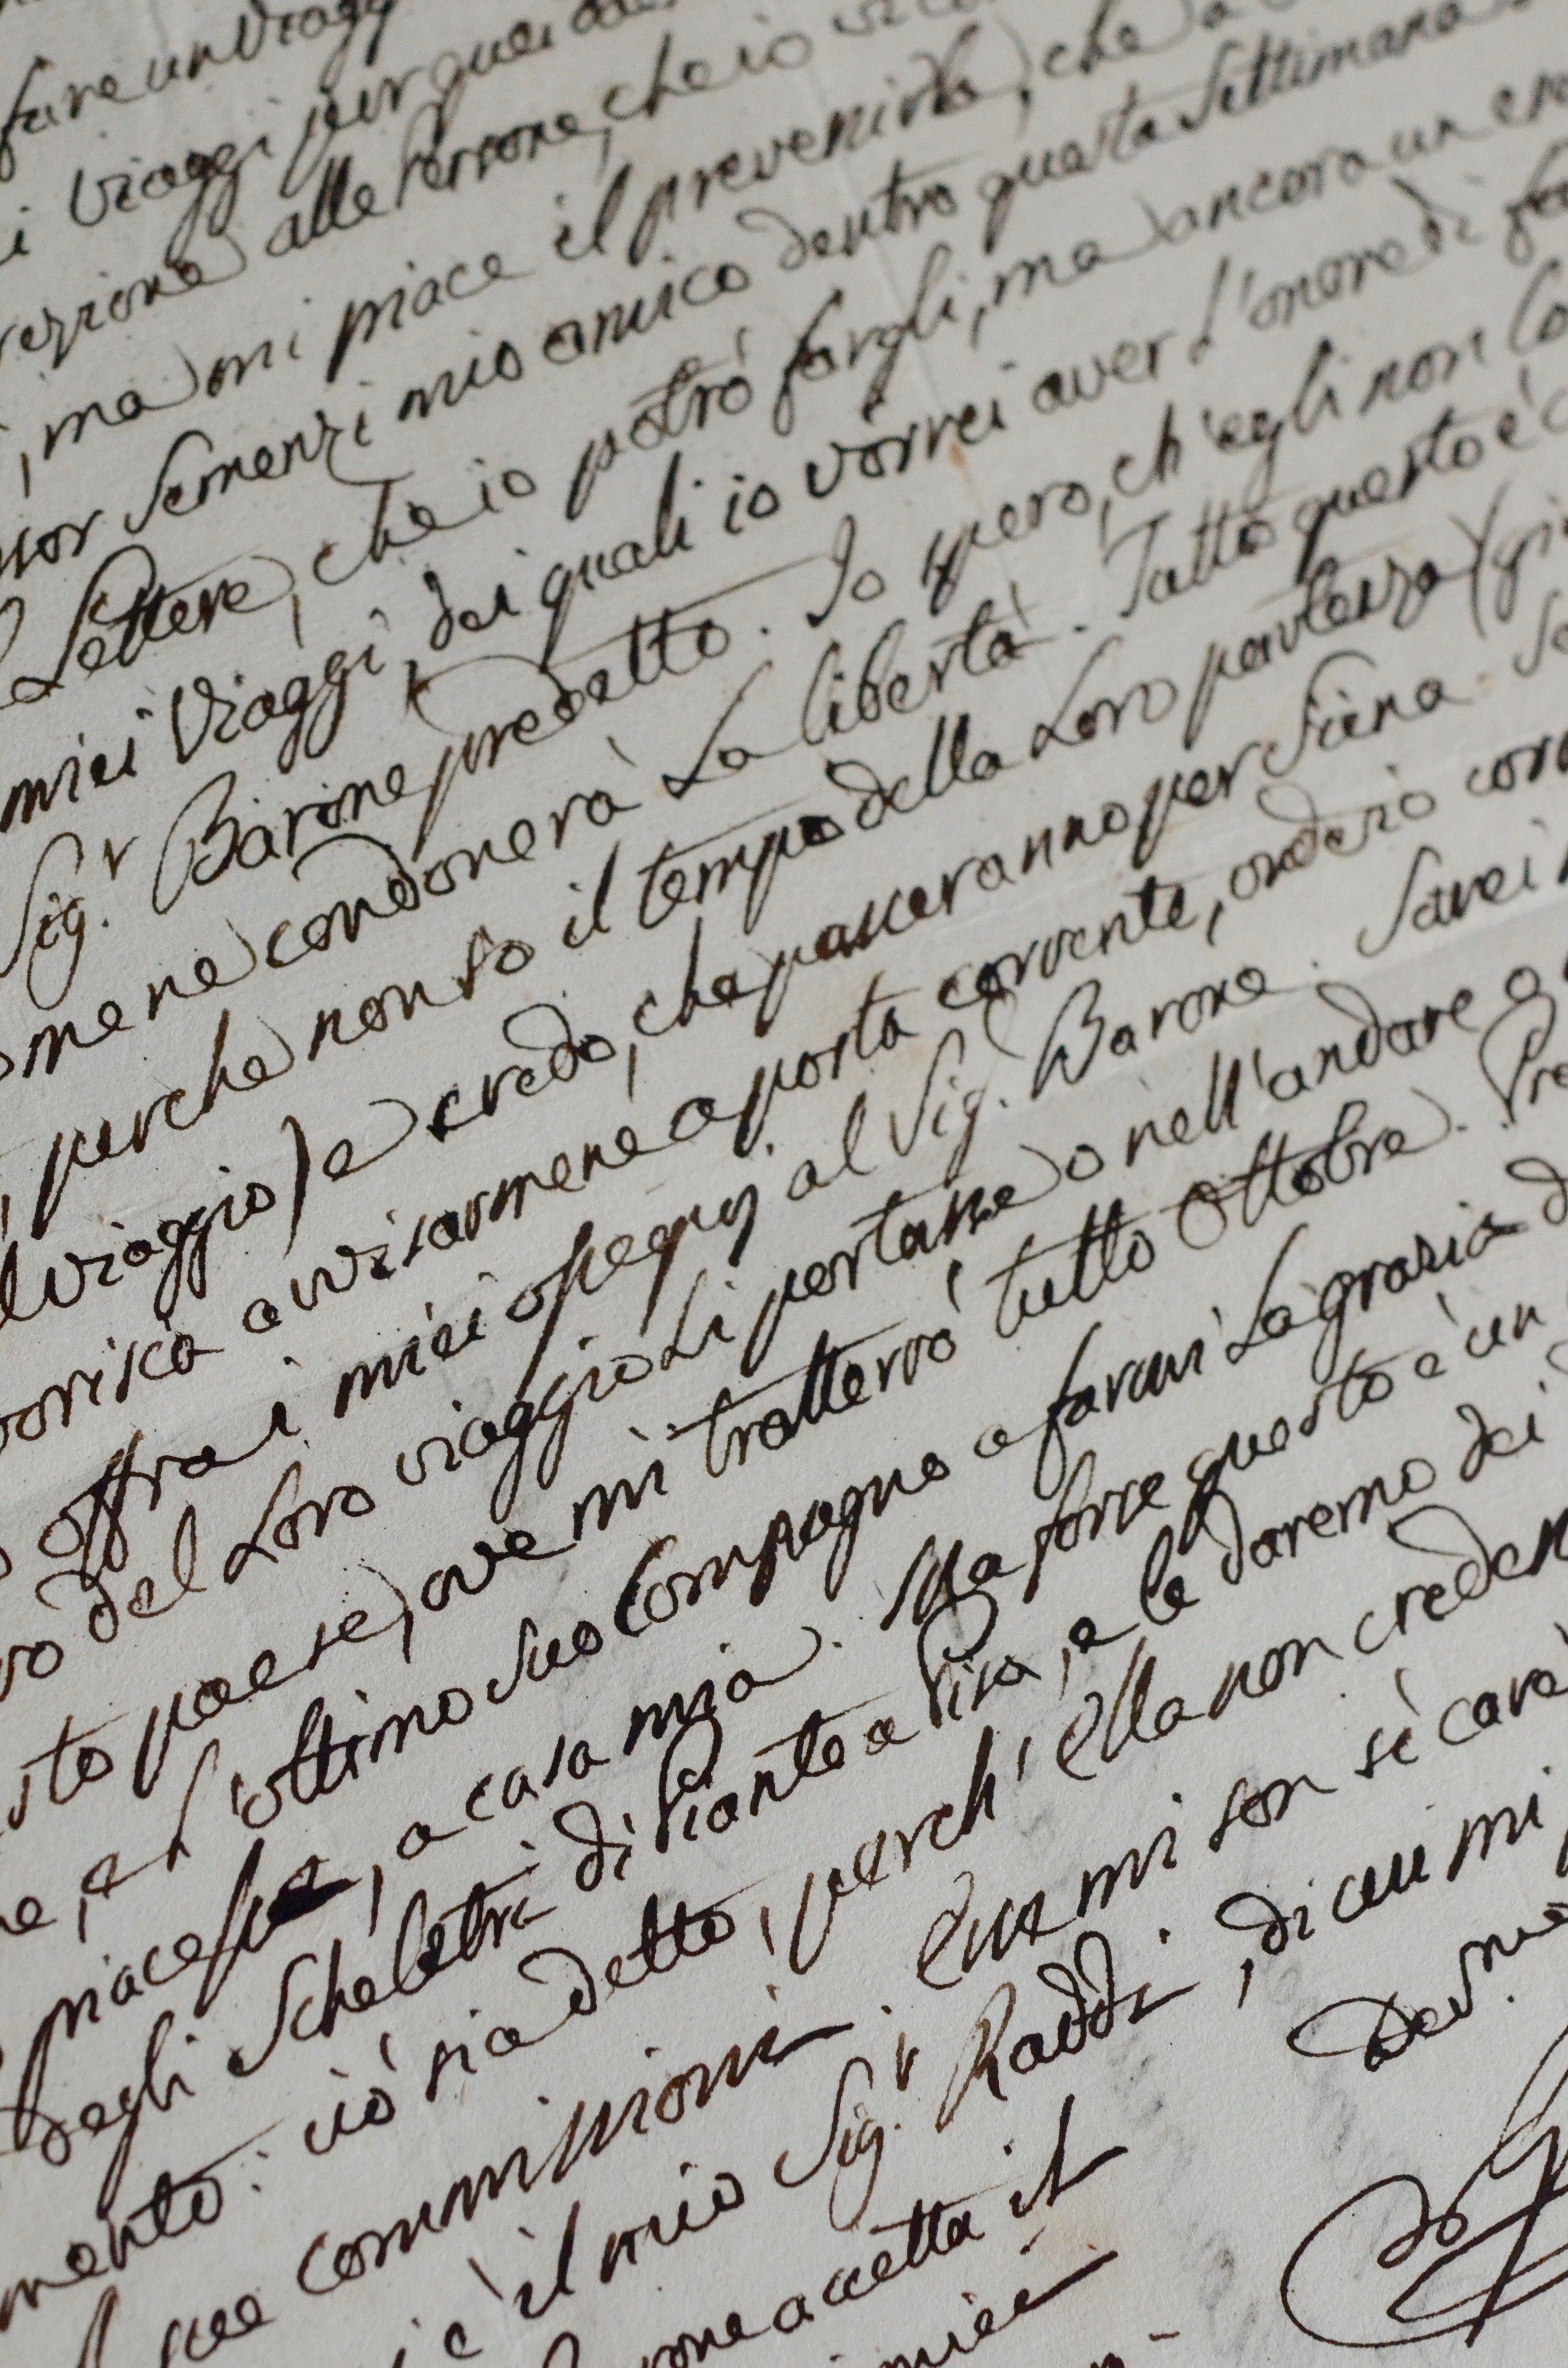 fare un Viagg
i Viaggi per quei
rezione alle Persone, che io
, ma mi piace il prevenirla, che
Semenzi mio amico dentro questa Settimana
Lettere, che io potrò fargli, ma ancora un
miei Viaggi, dei quali io vorrei aver l'onore di
Sig.r Barone predetto. Io spero, ch'egli non
me ne condonerà La libertà. Tutto questo è
, perche non so il tempo della Loro partenza (
viaggio) e credo, che passeranno per Siena. Se
orisca avvisarmene a posta corrente, ond'io
offra i miei ossequj al Sig. Barone. Sarei
del Loro viaggio Li portasse o nell'andare o
sto paese, ove mi tratterrò tutto Ottobre.
e, e l'ottimo suo Compagno a farmi La grazia
piacesse, a casa mia. Ma forse questo è un
degli Scheletri di Piante a Pisa, e le daremo dei
mento: ciò sia detto, perch'Ella non
sue commissioni. Esse mi son sì care
è il mio Sig.r Raddi, di cui mi
accetta il
miei